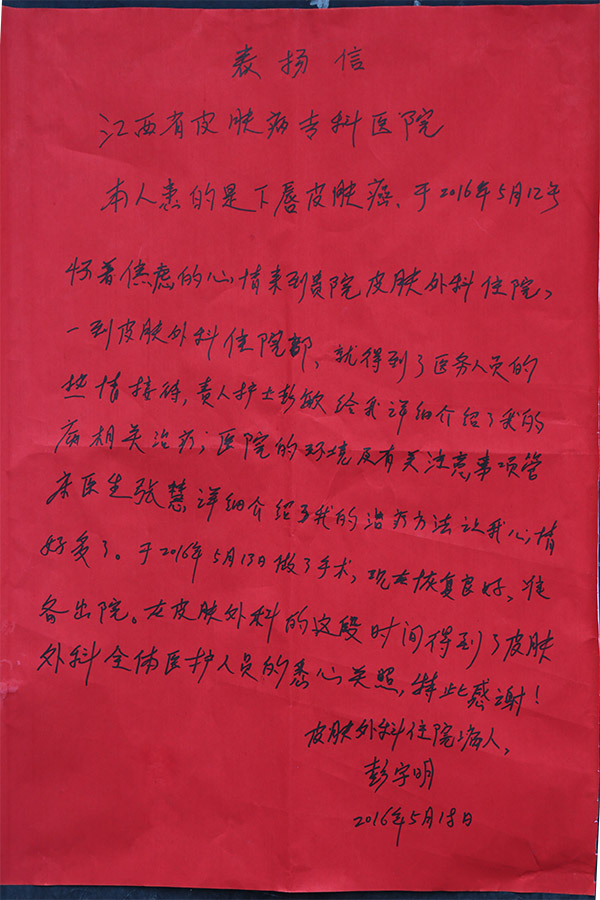 表扬信
江西省皮肤病专科医院
本人患的是下唇皮肤癌、于2016年5月12号
怀着焦虑的心情来到贵院皮肤外科住院,
一到皮肤外科住院部,就得到了医务人员的
热情接待,责人护士彭敏给我详细介绍了我的
病相关治疗;医院的环境及有关注意事项管
床医生张慧详细介绍了我的治疗方法让我心情
好多了。于2016年5月13日做了手术,现在恢复良好,准
备出院。在皮肤外科的这段时间得到了皮肤
外科全体医护人员的悉心关照,特此感谢!
皮肤外科住院病人,
彭字明
2016年5月18日